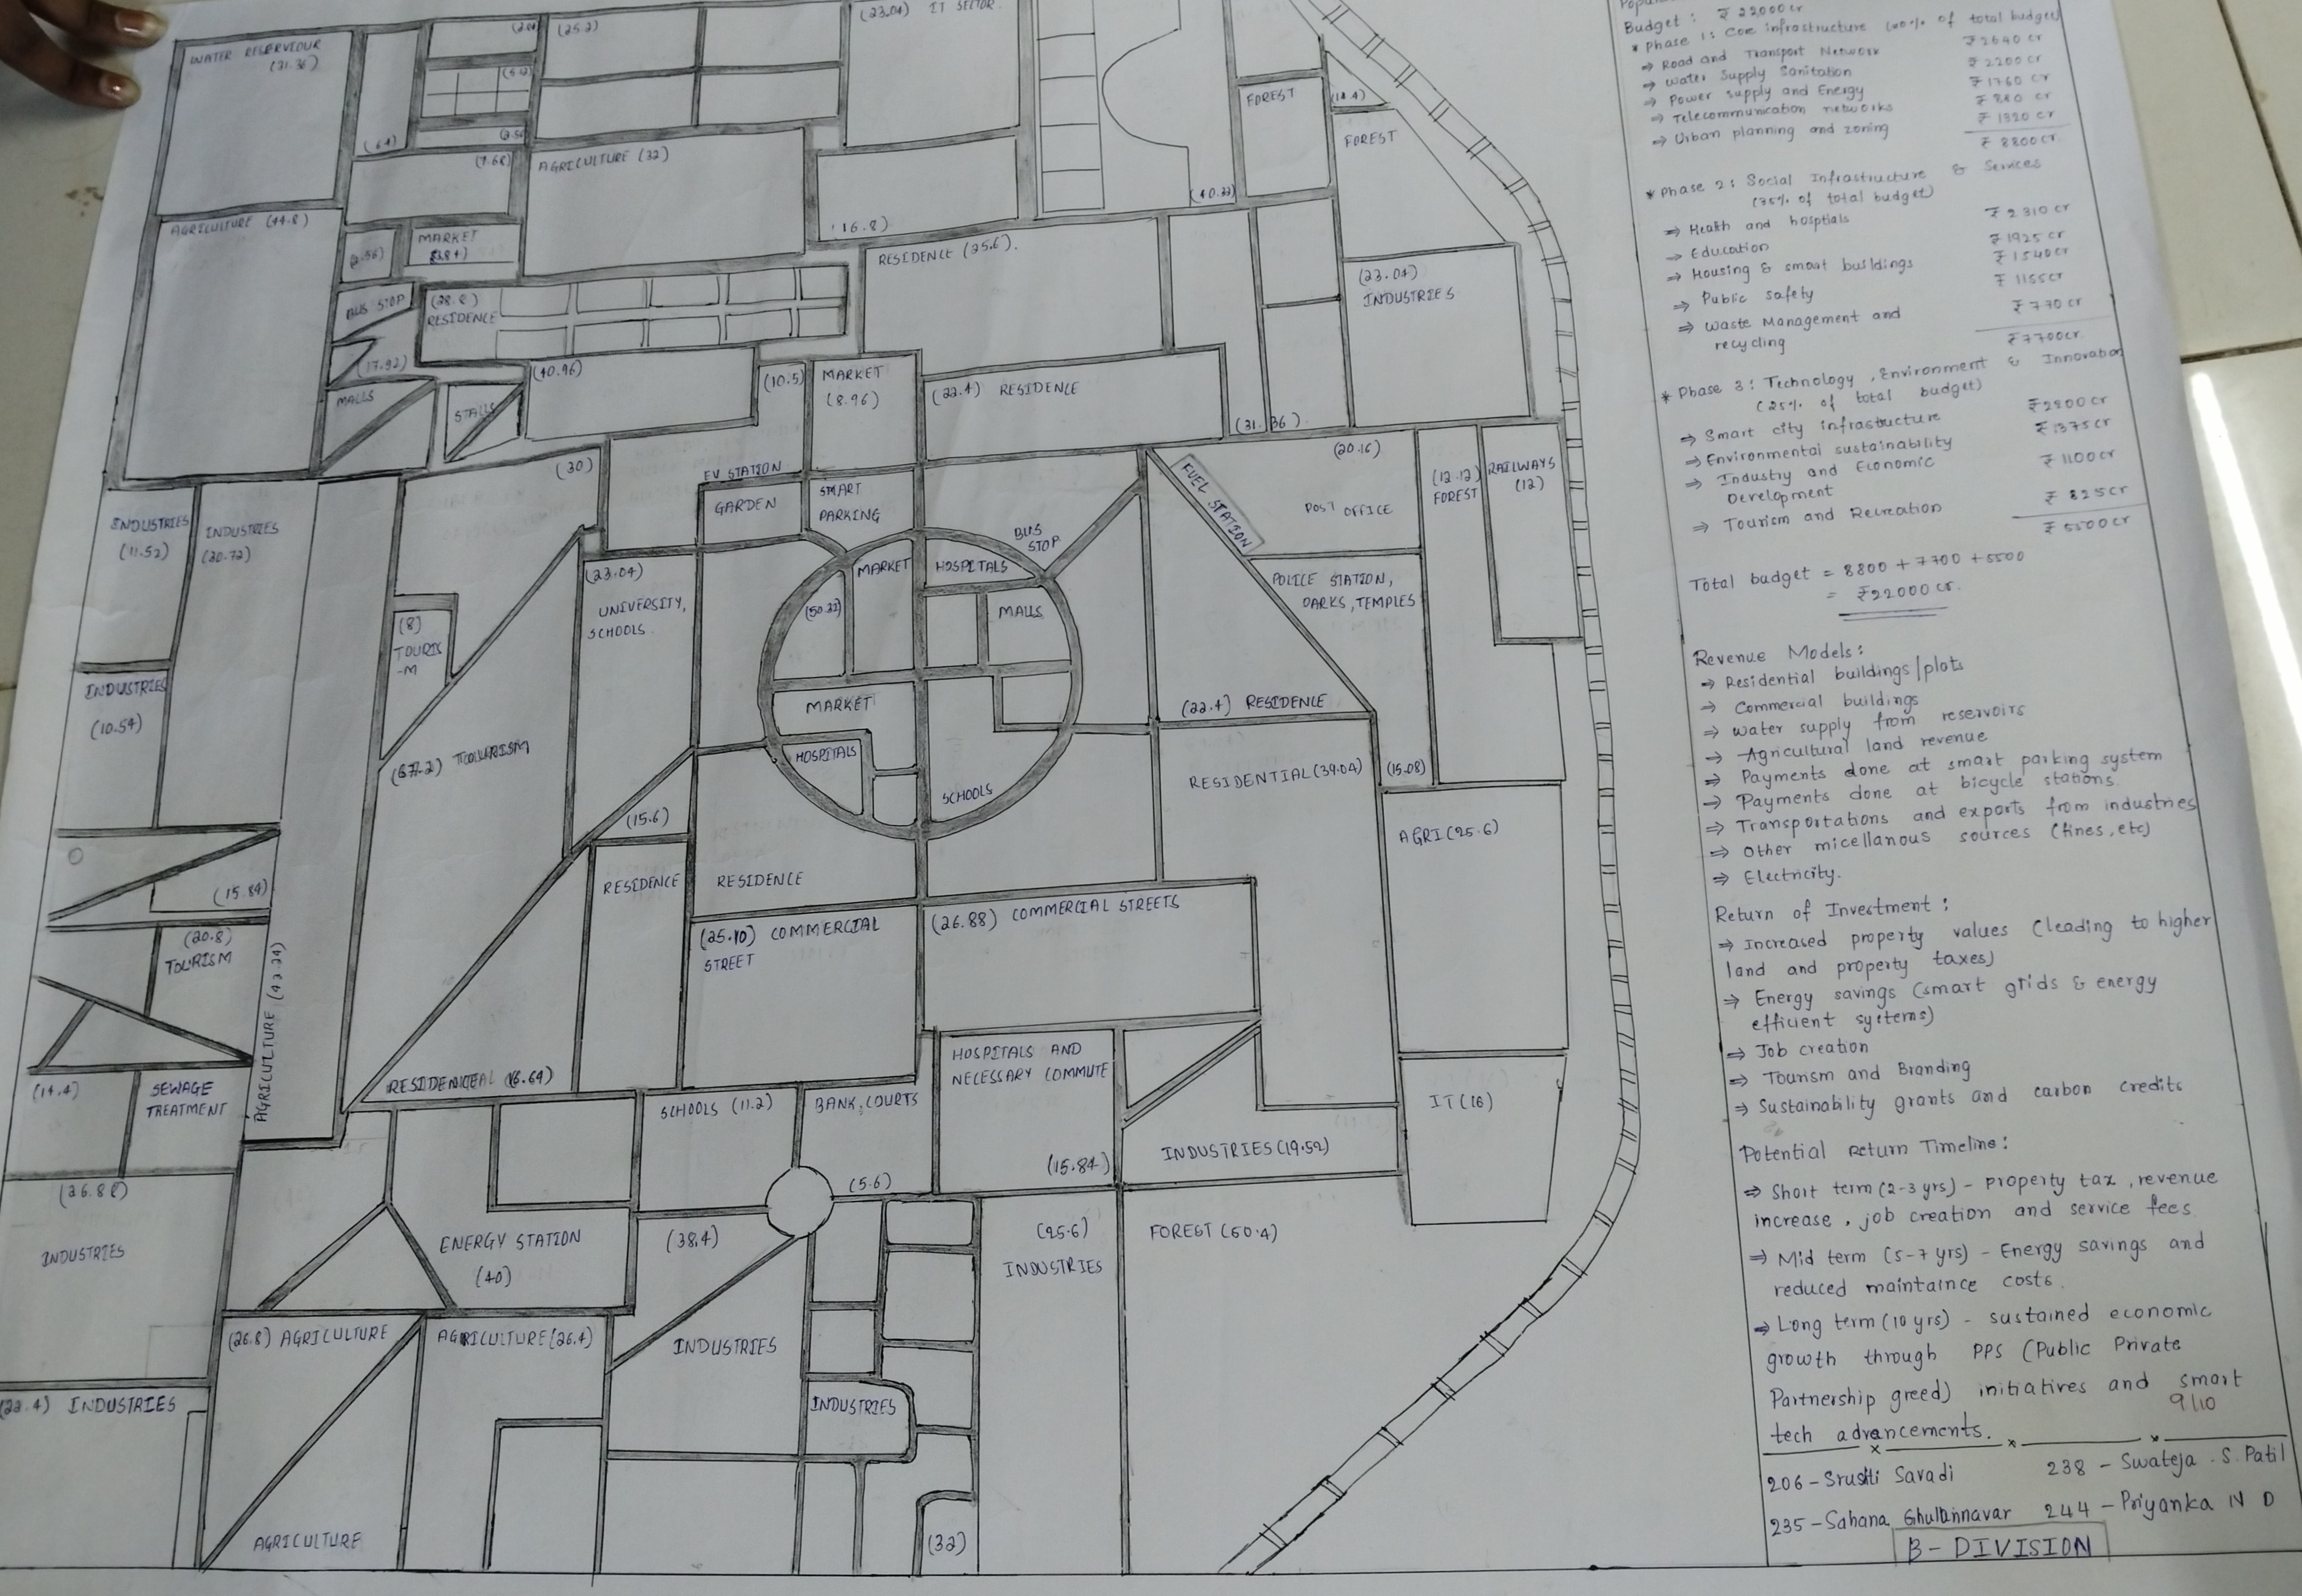 WATER RESERVIOUR
(31.36)
(6.4)
(5.12)
(2.56)
(7.68)
(25.2)
(23.04) IT SECTOR
AGRICULTURE (32)
(16.8)
(40.32)
FOREST
(14.4)
FOREST
AGRICULTURE (44.8)
(2.56)
MARKET
BUS STOP
(28.8)
RESIDENCE
(17.92)
MALLS
STALLS
(40.96)
(10.5)
MARKET
(8.96)
RESIDENCE (25.6).
(22.4) RESIDENCE
(31.36).
(23.04)
INDUSTRIES
(30)
EV STATION
GARDEN
SMART
PARKING
BUS
STOP
FUEL STATION
(20.16)
POST OFFICE
(12.12)
FOREST
RAILWAYS
(12)
POLICE STATION,
PARKS, TEMPLES
INDUSTRIES
(11.52)
INDUSTRIES
(20.72)
INDUSTRIES
(10.54)
(8)
TOURIS
-M
(67.2) TOURISM
(23.04)
UNIVERSITY,
SCHOOLS.
MARKET
HOSPITALS
(50.22)
MALLS
MARKET
HOSPITALS
SCHOOLS
(22.4) RESIDENCE
RESIDENTIAL (39.04)
(15.08)
AGRI (25.6)
(15.6)
RESIDENCE
RESIDENCE
(15.84)
(20.8)
TOURISM
AGRICULTURE (42.24)
(25.40) COMMERCIAL
STREET
(26.88) COMMERCIAL STREETS
(14.4)
SEWAGE
TREATMENT
RESIDENTIAL (16.64)
SCHOOLS (11.2)
BANK, COURTS
(5.6)
HOSPITALS AND
NECESSARY COMMUTE
(15.84)
INDUSTRIES (19.52)
IT (16)
(26.88)
INDUSTRIES
ENERGY STATION
(40)
(38.4)
INDUSTRIES
(25.6)
INDUSTRIES
FOREST (60.4)
(26.8) AGRICULTURE
AGRICULTURE (26.4)
(22.4) INDUSTRIES
INDUSTRIES
AGRICULTURE
(32)
Budget : ₹ 22000 cr
* Phase 1: Core infrastructure (40% of total budget)
⇒ Road and Transport Network ₹ 2640 cr
⇒ Water Supply Sanitation ₹ 2200 cr
⇒ Power supply and Energy ₹ 1760 cr
⇒ Telecommunication networks ₹ 880 cr
⇒ Urban planning and zoning ₹ 1320 cr
₹ 8800 cr.
* Phase 2: Social Infrastructure & Services
(35% of total budget)
⇒ Health and hosptials ₹ 2310 cr
⇒ Education ₹ 1925 cr
⇒ Housing & smart buildings ₹ 1540 cr
⇒ Public safety ₹ 1155 cr
⇒ Waste Management and ₹ 770 cr
recycling
₹ 7700 cr.
* Phase 3: Technology, Environment & Innovation
(25% of total budget)
⇒ Smart city infrastructure ₹ 2200 cr
⇒ Environmental sustainability ₹ 1375 cr
⇒ Industry and Economic ₹ 1100 cr
Development
⇒ Tourism and Recreation ₹ 825 cr
₹ 5500 cr
Total budget = 8800 + 7700 + 5500
= ₹ 22000 cr.
Revenue Models:
⇒ Residential buildings/plots
⇒ Commercial buildings
⇒ Water supply from reservoirs
⇒ Agricultural land revenue
⇒ Payments done at smart parking system
⇒ Payments done at bicycle stations.
⇒ Transportations and exports from industries
⇒ Other micellanous sources (fines, etc)
⇒ Electricity.
Return of Investment :
⇒ Increased property values (leading to higher
land and property taxes)
⇒ Energy savings (smart grids & energy
efficient systems)
⇒ Job creation
⇒ Tourism and Branding
⇒ Sustainability grants and carbon credits
Potential Return Timeline:
⇒ Short term (2-3 yrs) - property tax, revenue
increase, job creation and service fees.
⇒ Mid term (5-7 yrs) - Energy savings and
reduced maintaince costs.
⇒ Long term (10 yrs) - sustained economic
growth through PPS (Public Private
Partnership greed) initiatives and smart
tech advancements.
9/10
206 - Srushti Savadi 238 - Swateja . S. Patil
235 - Sahana Ghulannavar 244 - Priyanka N D
B - DIVISION